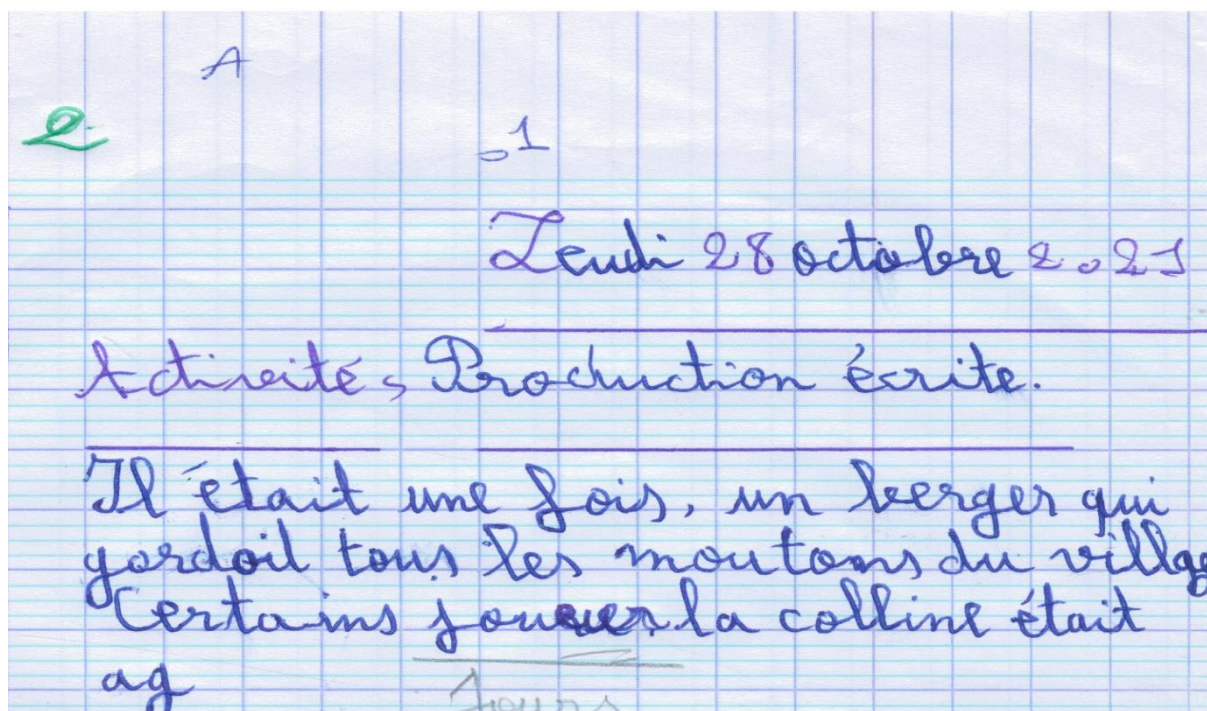 A
2
.1
Jeudi 28 octobre 2021
Activité, Production écrite.
Il était une fois, un berger qui
gardoit tous les moutons du village
Certains la colline était
ag
Jours